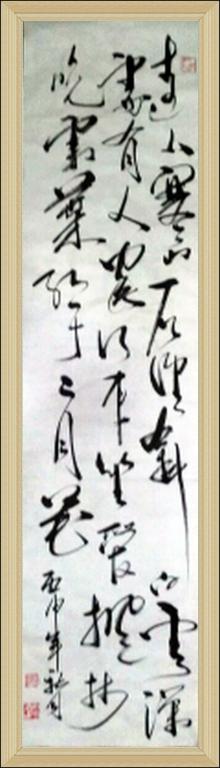 遠上寒山石徑斜白雲深
處有人家停車坐愛楓林
晚霜葉紅于二月花丙申年秋月